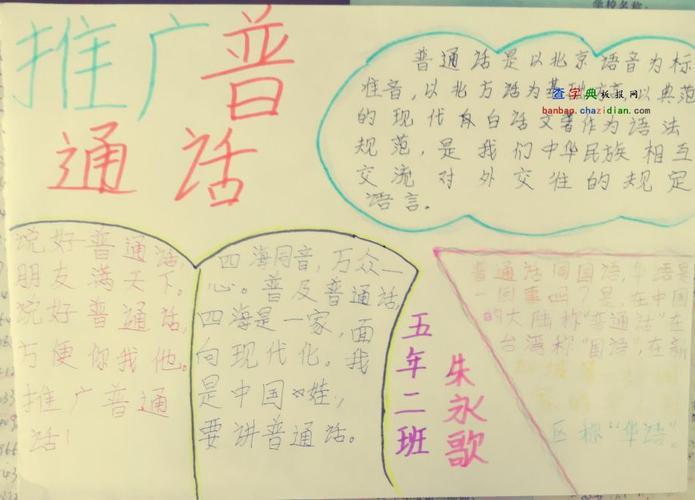 学校名称:
推广普
通话
普通话是以北京语音为标
准音,以北方话为基础 以典范
的现代 白话文著作为语法
规范,是我们中华民族相互
交流对外交往的规定
语言。
查字典板报网
banbao.chazidian.com
说好普通话,
朋友满天下。
说好普通话,
方便你我他。
推广普通
话!
四海同音,万众一
心。普及普通话,
四海是一家,面
向现代化。我
是中国 娃,
要讲普通话。
五年二班
朱永歌
普通话同国语,华语是
一回事吗?是在中国
的大陆称“普通话”在
台湾称“国语”,在新
区称“华语”。